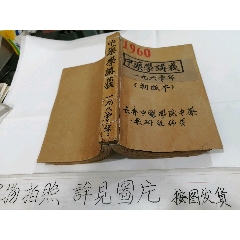 1960
中藥學講義
一九六〇年
(初版本)
长春中医学院中药
教研组编
中藥學講義
一九六〇年
實物拍照 詳見圖片 按图发货